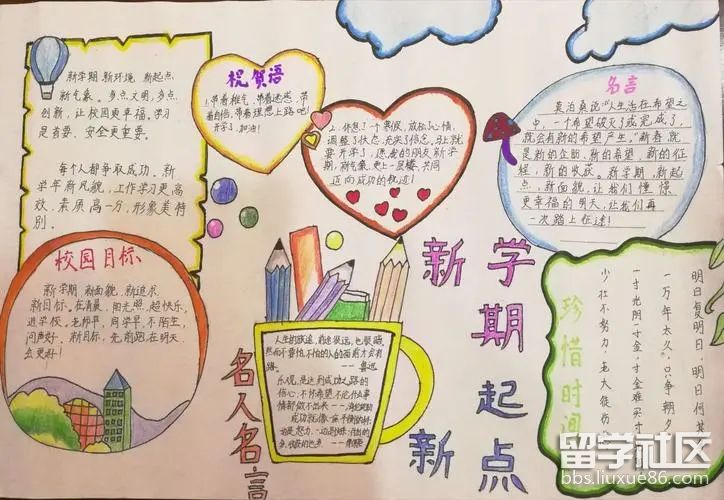 新学期,新环境,新起点,
新气象。多点文明,多点
创新,让校园更幸福,学习
是首要、安全更重要。
每个人都争取成功、新
学年新风貌,工作学习更高
效、素质高一方,形象美特
别。
祝贺语
1.带着稚气,带着迷惑,带
着自信,带着理想上路吧!
开学了,加油!
2.休息了一个寒假,放松心情,
调整了状态,充实了信念。马上就
要开学了,愿我的朋友新学
期,新气象,更上一层楼,共同
迈向成功的牧途!
名言
莫泊桑说"人生活在希望之
中,一个希望破灭了或完成了,
就会有新的希望产生。"新春,就
是新的企盼、新的希望、新的征
程、新的收获。新学期,新起
点,新面貌,让我们憧憬
更幸福的明天,让我们再
一次踏上征途!
校园目标
新学期,新面貌,新追求,
新目标。在清晨,阳光照,超快乐,
进学校。老师早,同学早,不陌生,
问声好、新目标,先前跑,在明天
么更好!
新学期起点
新
珍惜时间
明日复明日,明日何其
一万年太久,只争朝夕
一寸光阴一寸金,寸金难买寸
少壮不努力,老大徒伤
名人名言
——鲁迅
乐观,是达到成功之路的
信心;不怀希望,不论什么事
情都做不出来
留学社区
bbs.liuxue86.com